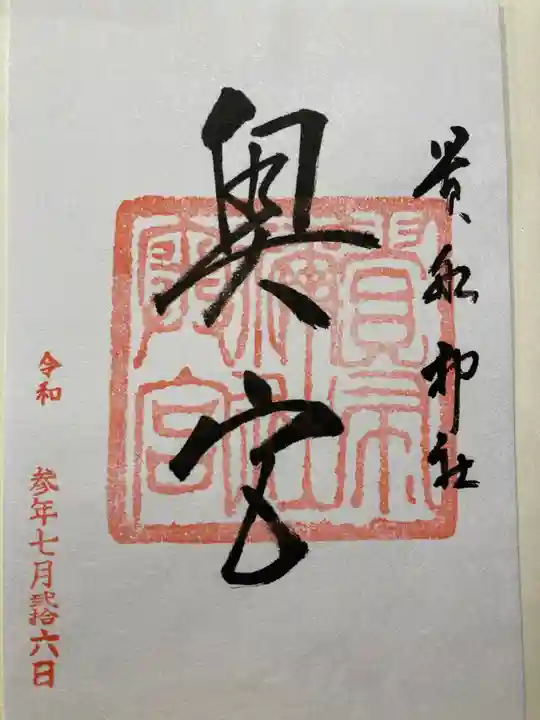 貴船神社
奥宮
令和 参年七月弐拾六日